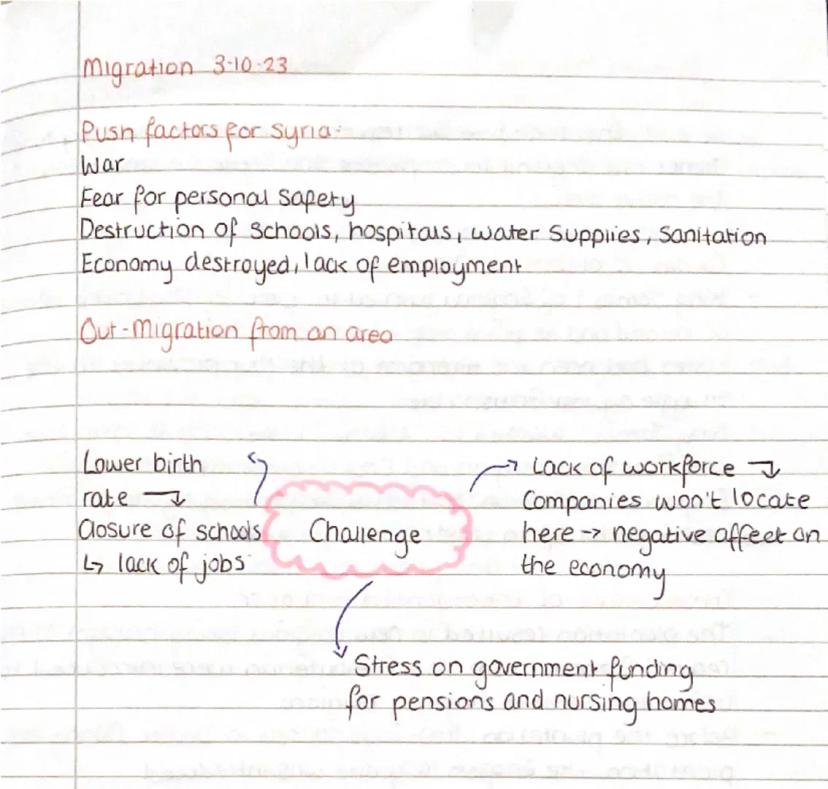 Migration 3.10.23
Push factors for Syria:
War
Fear for personal safety
Destruction of schools, hospitals, water supplies, sanitation
Economy destroyed, lack of employment
Out-Migration from an area
Lower birth
rate →
Closure of schools
↳ lack of jobs
Challenge
→ Lack of workforce →
Companies won't locate
here → negative affect on
the economy
Stress on government funding
for pensions and nursing homes